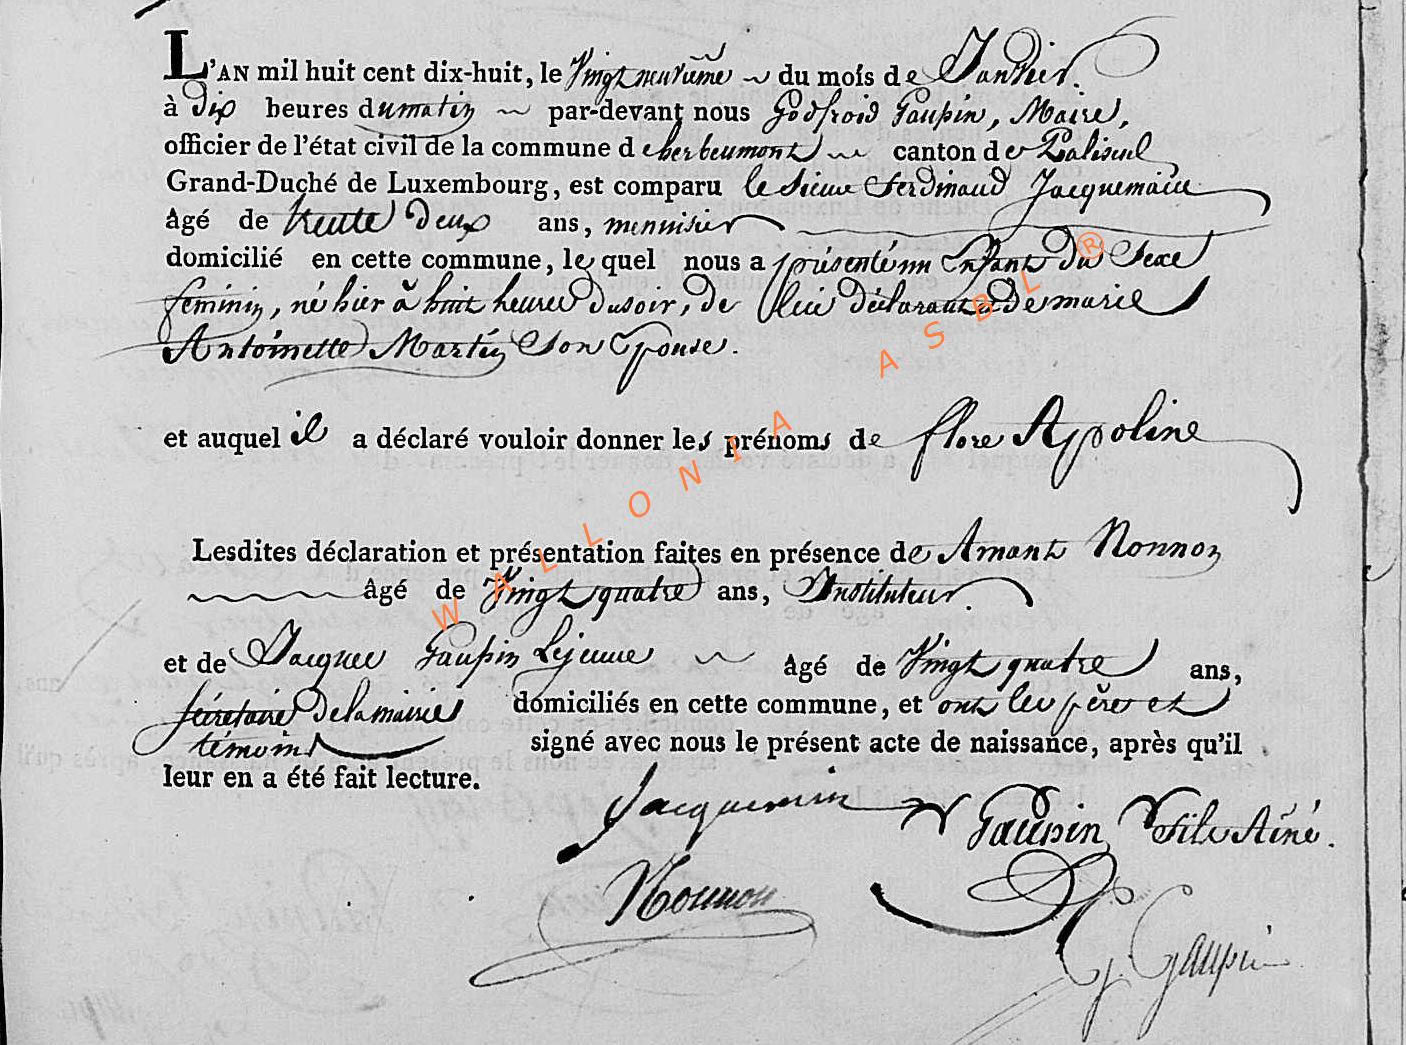 L'AN mil huit cent dix-huit, le Vingt neuvième du mois de Janvier.
à Dix heures du matin par-devant nous Godfroid Gaupin, Maire,
officier de l'état civil de la commune d'herbeumont canton de Paliseul
Grand-Duché de Luxembourg, est comparu le Sieur Ferdinand Jacquemain
âgé de trente Deux ans, mennisier
domicilié en cette commune, lequel nous a présenté un Enfant du Sexe
féminin, né hier à huit heures du soir, de lui déclarant & de marie
Antoinette Martin Son Epouse.
et auquel il a déclaré vouloir donner les prénoms de flore Appoline
Lesdites déclaration et présentation faites en présence de Amant Nonnon
âgé de Vingt quatre ans, Instituteur.
et de Jacques Gaupin Lejeune âgé de Vingt quatre ans,
sécretaire de la mairie domiciliés en cette commune, et ont les père et
témoins signé avec nous le présent acte de naissance, après qu'il
leur en a été fait lecture.
Jacquemin Gaupin fils Ainé.
Nonnon
G. Gaupin
WALLONIA ASBL ®